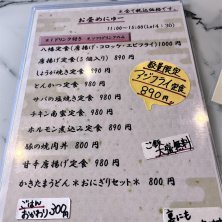 ※全て税込価格です。
お昼めにゅー
11:00～15:00(Lo14:30)
※1ドリンク付き ※ソフトドリンクのみ
八幡定食(唐揚げ・コロッケ・エビフライ)1000円
唐揚げ定食(5個入り) 890円
しょうが焼き定食 990円
とんかつ定食 980円
サバの塩焼き定食 980円
チキン南蛮定食 980円
ホルモン煮込み定食 890円
豚の焼肉丼 800円
甘辛唐揚げ定食 980円
かきたまうどん＊おにぎりセット＊ 800円
数量限定
アジフライ定食
890円
ご飯
大盛無料!
ごはん
おかわり300円